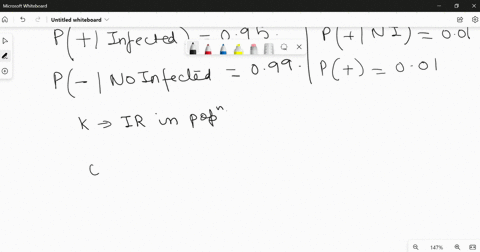 Microsoft Whiteboard
Untitled whiteboard
P(+| Infected) = 0.95
P(+| NI) = 0.01
P(-| No Infected = 0.99
P(+) = 0.01
K → IR in popⁿ
C
147%